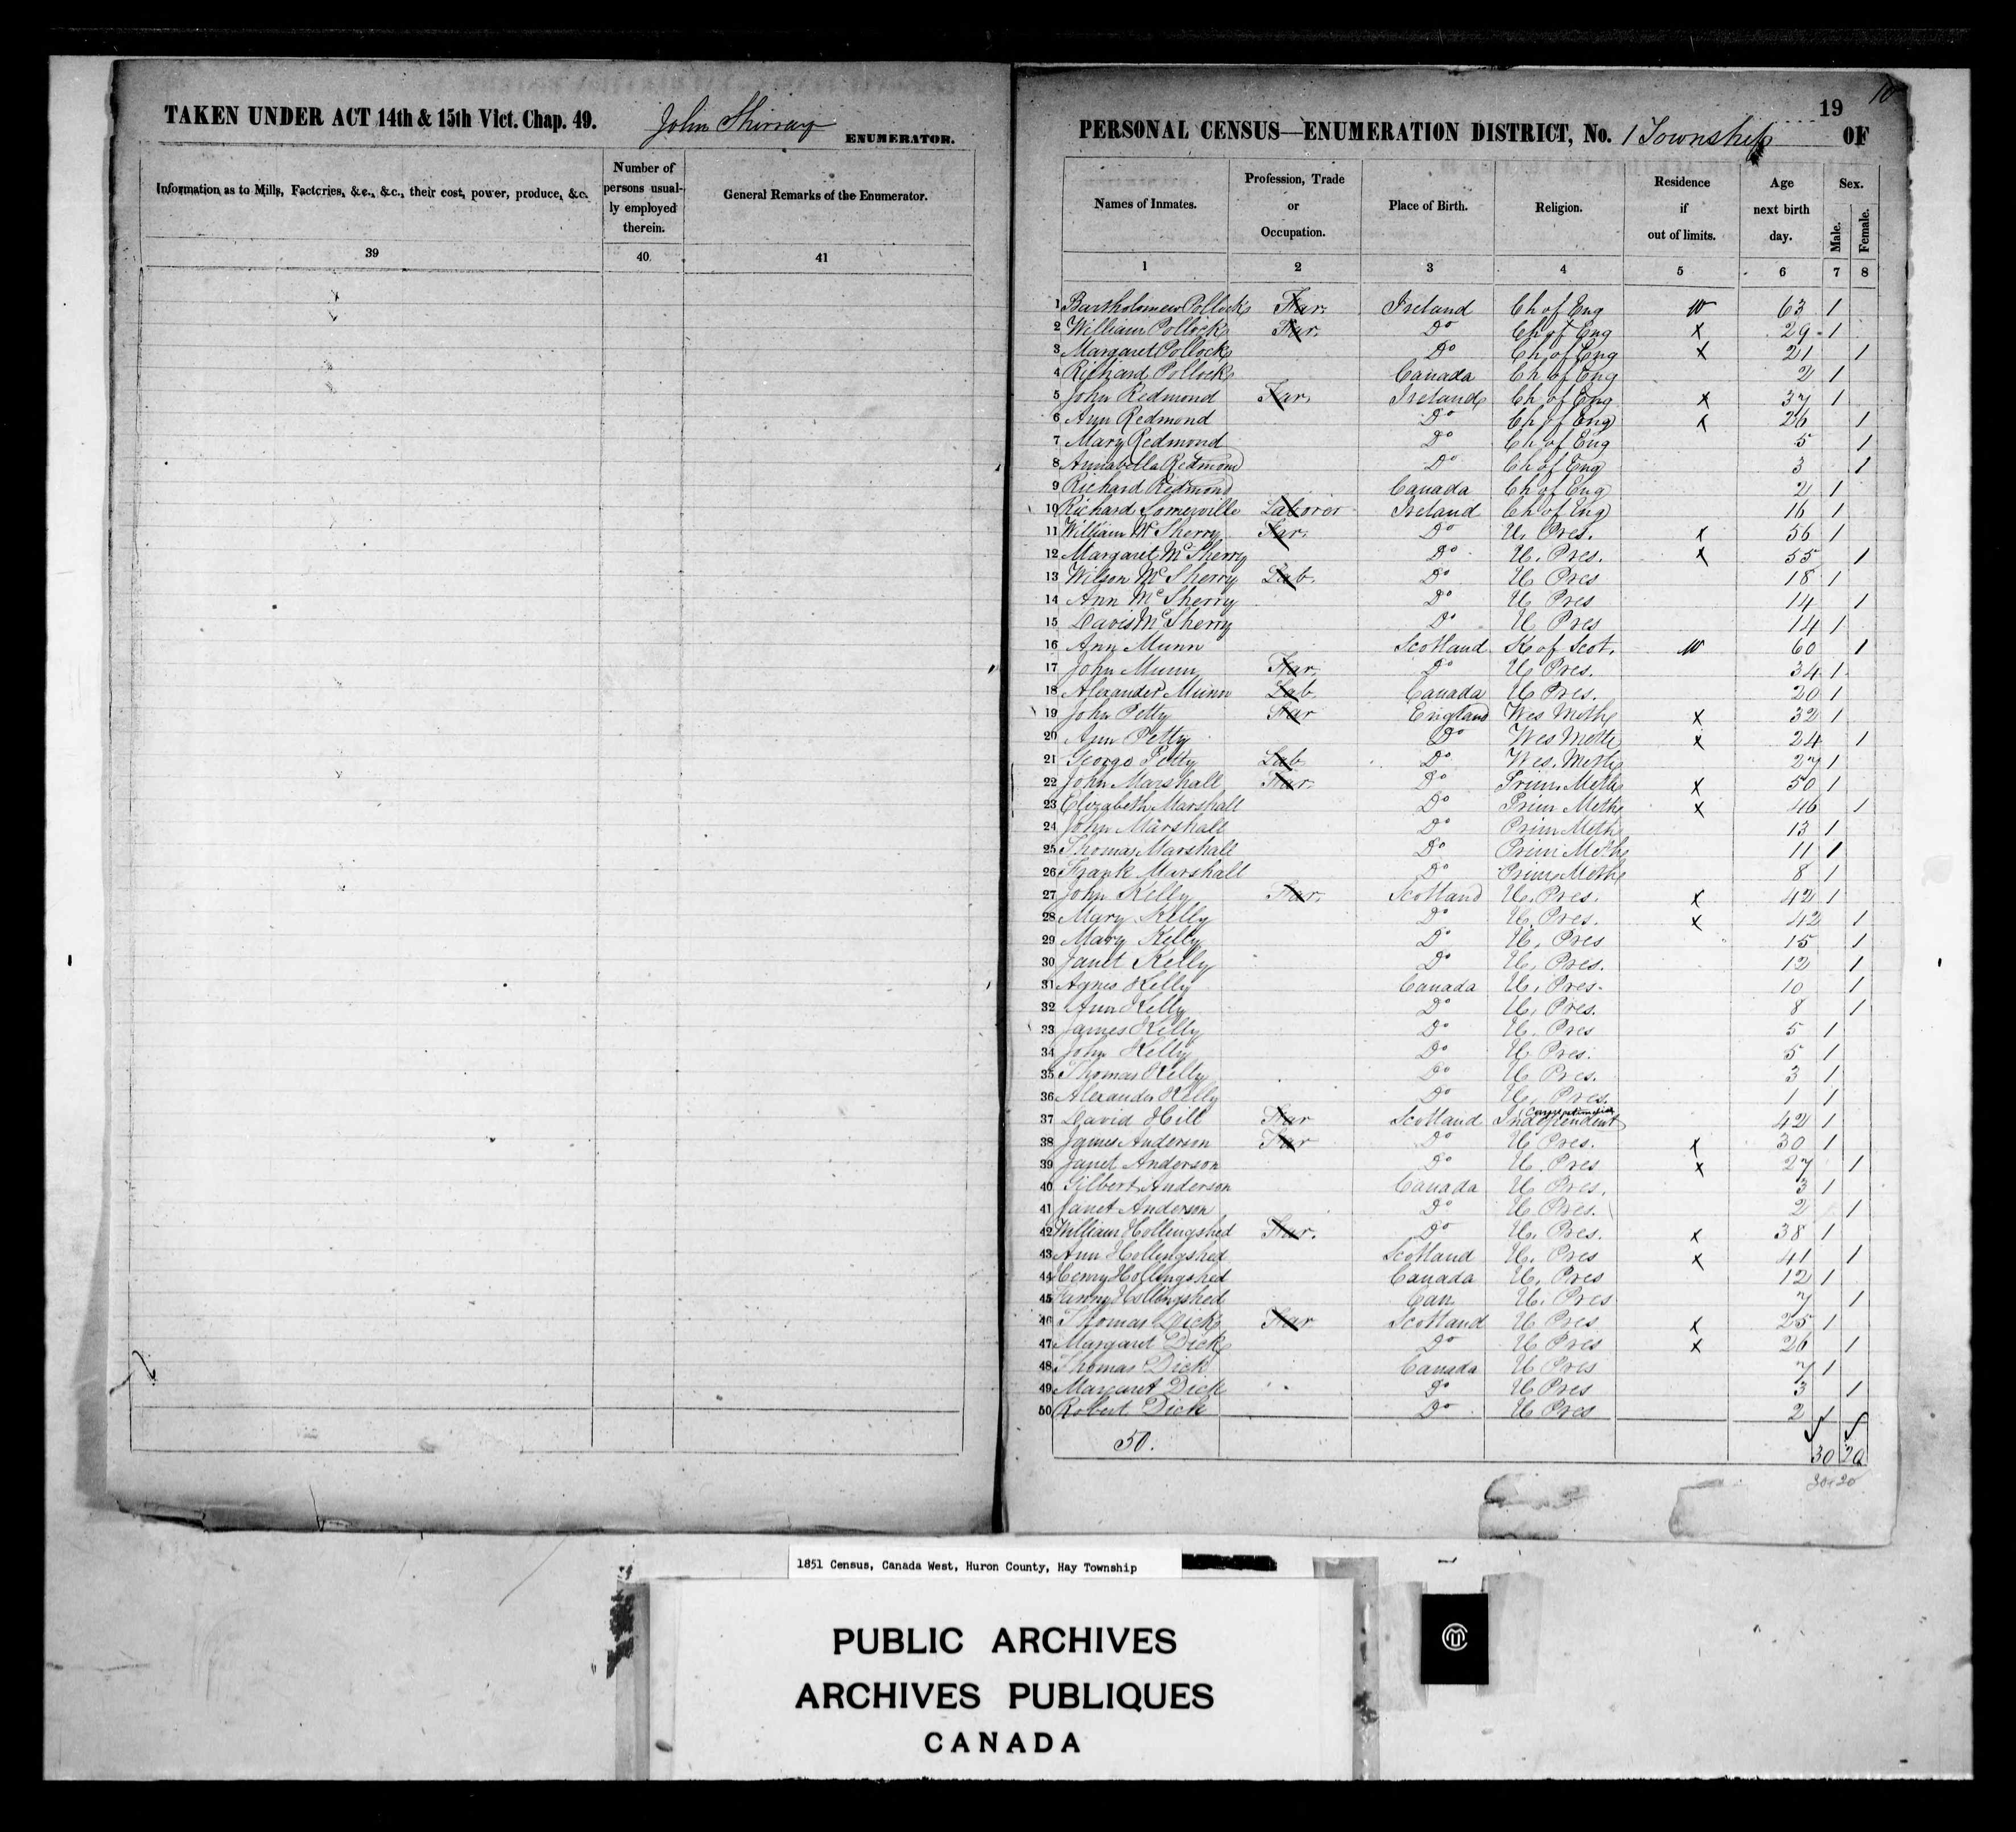 TAKEN UNDER ACT 14th & 15th Vict. Chap. 49. John Shirray ENUMERATOR.
Information as to Mills, Factories, &c., &c., their cost, power, produce, &c.
Number of persons usually employed therein.
General Remarks of the Enumerator.
39 40 41
19 10
PERSONAL CENSUS—ENUMERATION DISTRICT, No. 1 Township OF
Names of Inmates. Profession, Trade or Occupation. Place of Birth. Religion. Residence if out of limits. Age next birth day. Sex. Male. Female.
1 2 3 4 5 6 7 8
1 Bartholomew Pollock Far. Ireland Ch of Eng W 63 1
2 William Pollock Far. Do Ch of Eng x 29 1
3 Margaret Pollock Do Ch of Eng x 21 1
4 Richard Pollock Canada Ch of Eng 2 1
5 John Redmond Far. Ireland Ch of Eng x 37 1
6 Ann Redmond Do Ch of Eng x 26 1
7 Mary Redmond Do Ch of Eng 5 1
8 Annabella Redmond Do Ch of Eng 3 1
9 Richard Redmond Canada Ch of Eng 2 1
10 Richard Somerville Laborer Ireland Ch of Eng 16 1
11 William McSherry Far. Do U. Pres. x 56 1
12 Margaret McSherry Do U. Pres. x 55 1
13 Wilson McSherry Lab. Do U Pres 18 1
14 Ann McSherry Do U Pres 14 1
15 Davis McSherry Do U Pres 14 1
16 Ann Munn Scotland K of Scot. W 60 1
17 John Munn Far. Do U Pres. 34 1
18 Alexander Munn Lab Canada U Pres. 20 1
19 John Petty Far England Wes Meth x 32 1
20 Ann Petty Do Wes Meth x 24 1
21 George Petty Lab Do Wes. Meth 27 1
22 John Marshall Far. Do Prim. Meth x 50 1
23 Elizabeth Marshall Do Prim Meth x 46 1
24 John Marshall Do Prim Meth 13 1
25 Thomas Marshall Do Prim Meth 11 1
26 Frank Marshall Do Prim Meth 8 1
27 John Kelly Far. Scotland U. Pres. x 42 1
28 Mary Kelly Do U. Pres. x 42 1
29 Mary Kelly Do U. Pres 15 1
30 Janet Kelly Do U. Pres. 12 1
31 Agnes Kelly Canada U. Pres. 10 1
32 Ann Kelly Do U. Pres. 8 1
33 James Kelly Do U. Pres 5 1
34 John Kelly Do U Pres. 5 1
35 Thomas Kelly Do U Pres. 3 1
36 Alexander Kelly Do U. Pres. 1 1
37 David Hill Far Scotland Independent 42 1
38 James Anderson Far Do U Pres. x 30 1
39 Janet Anderson Do U. Pres x 27 1
40 Gilbert Anderson Canada U Pres. 3 1
41 Janet Anderson Do U Pres. 2 1
42 William Hollingshed Far. Do U. Pres. x 38 1
43 Ann Hollingshed Scotland U. Pres x 41 1
44 Henry Hollingshed Canada U. Pres 12 1
45 Fanny Hollingshed Can. U. Pres 7 1
46 Thomas Dick Far Scotland U Pres x 25 1
47 Margaret Dick Do U Pres x 26 1
48 Thomas Dick Canada U Pres 7 1
49 Margaret Dick Do U Pres 3 1
50 Robert Dick Do U Pres 2 1
50. 30 20
30 20
1851 Census, Canada West, Huron County, Hay Township
PUBLIC ARCHIVES
ARCHIVES PUBLIQUES
CANADA